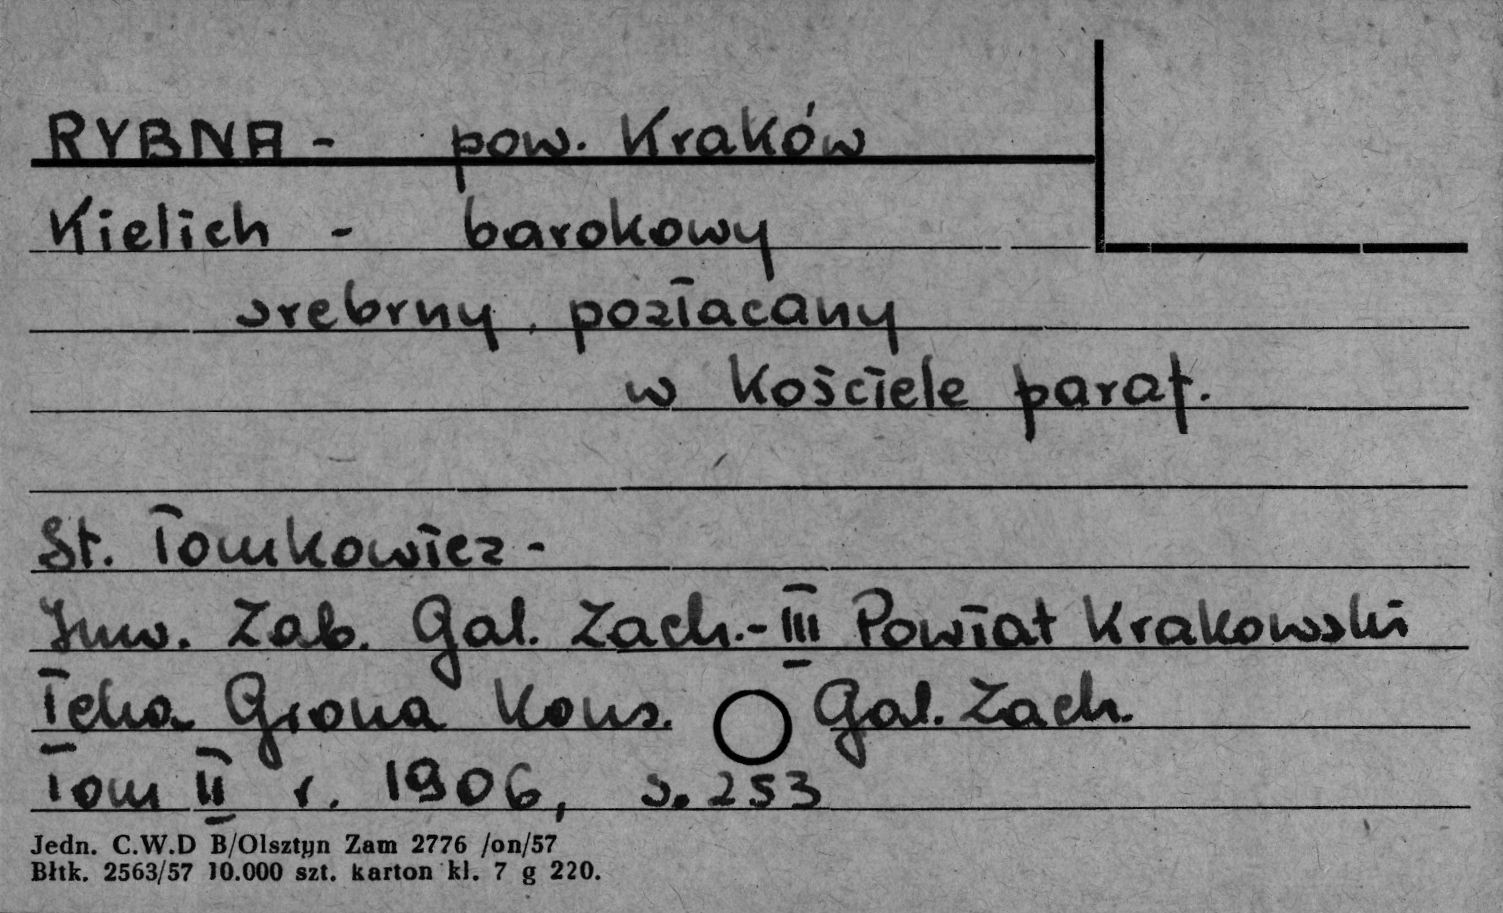 RYBNA - pow. Kraków
Kielich - barokowy
srebrny, pozłacany
w kościele paraf.
St. Tomkowicz -
Inw. Zab. Gal. Zach. - III Powiat Krakowski
Teka Grona Kons. Gal. Zach.
Tom II r. 1906, s. 253
Jedn. C.W.D B/Olsztyn Zam 2776 /on/57
Błtk. 2563/57 10.000 szt. karton kl. 7 g 220.